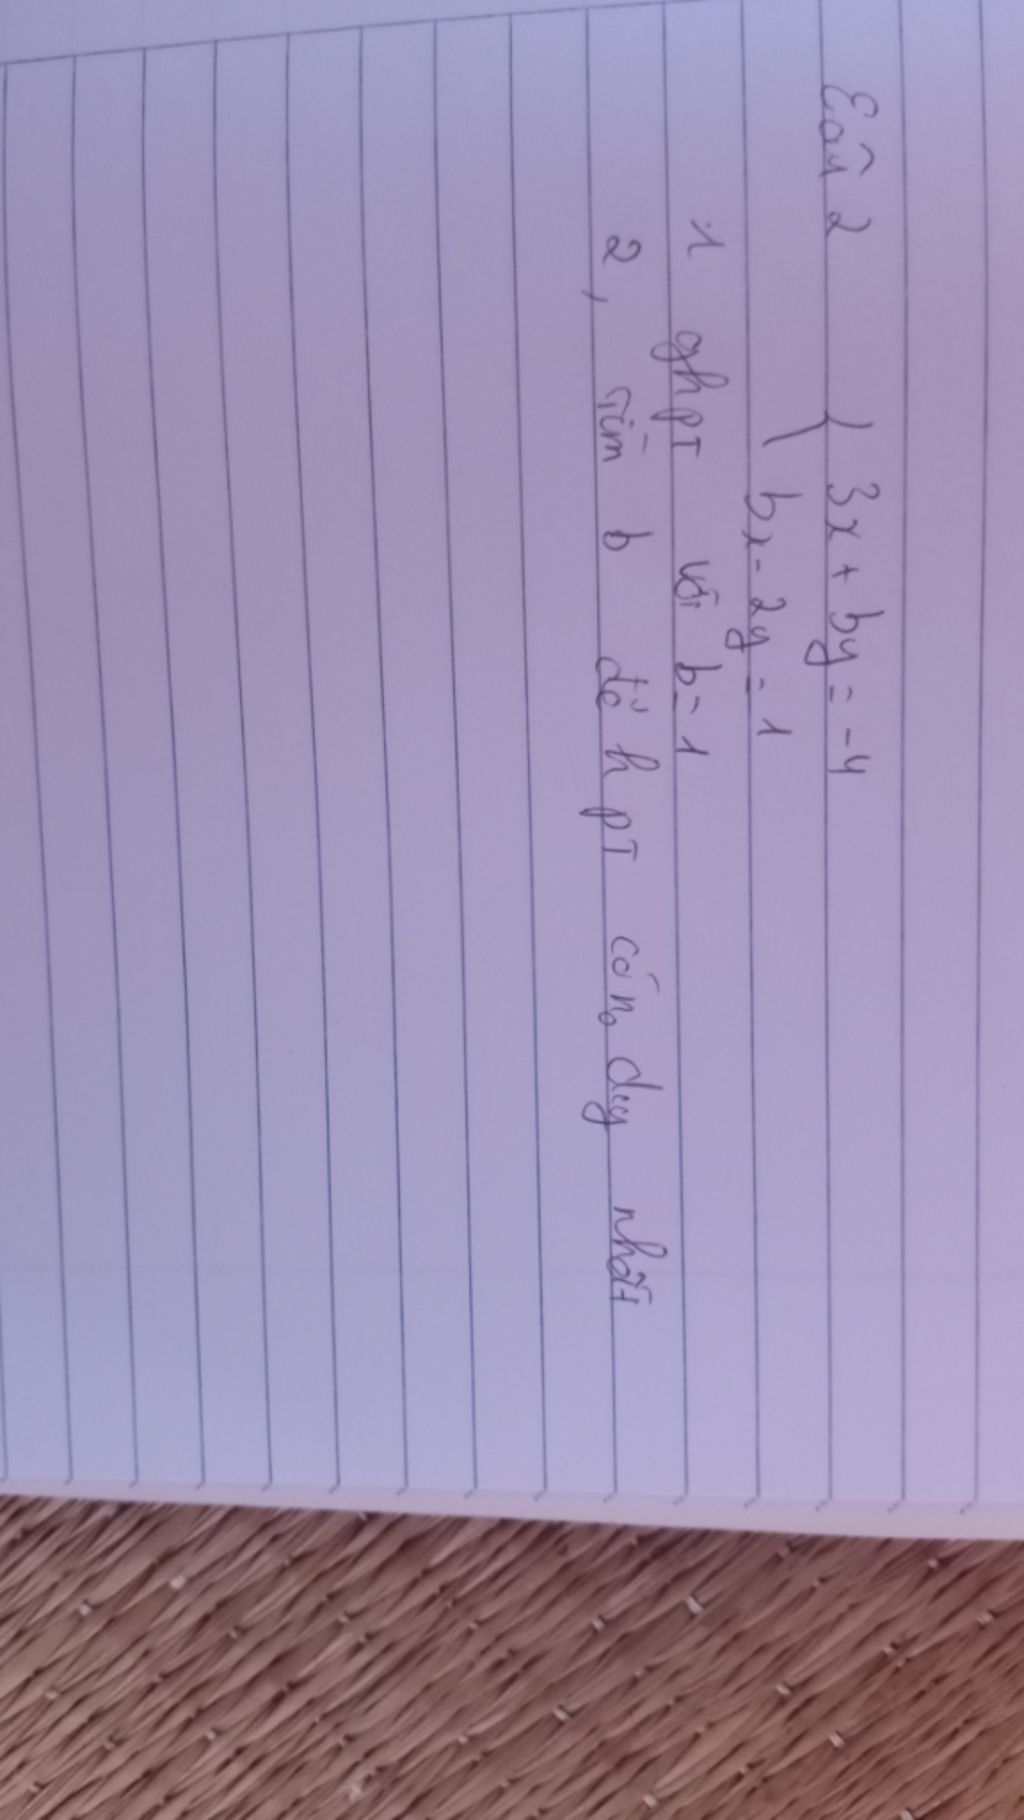 Câu 2 { 3x + by = -4
bx - 2y = 1
1 ghpt với b = 1
2, Tìm b để hpT có no duy nhất